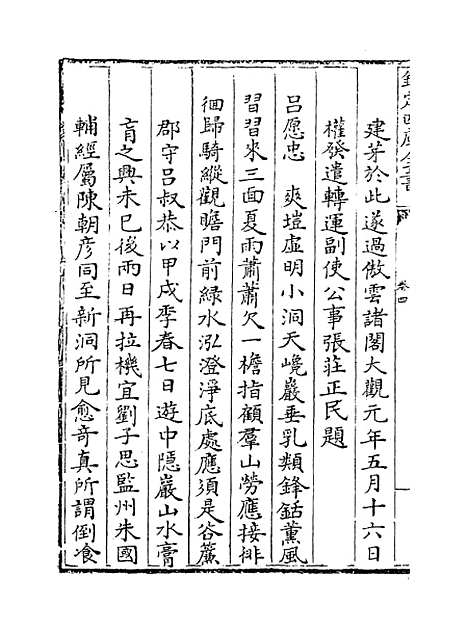 欽定四庫全書
卷四
建芽於此遂過傲雲諸閣大觀元年五月十六日
權發遣轉運副使公事張莊正民題
呂愿忠　爽塏虛明小洞天巉巖垂乳類鋒銛薰風
習習來三面夏雨蕭蕭欠一檐指顧羣山勞應接徘
徊歸騎縱觀瞻門前綠水泓澄淨底處應須是谷簾
郡守呂叔恭以甲戌季春七日遊中隱巖山水膏
肓之興未已後兩日再拉機宜劉子思監州朱國
輔經屬陳朝彥同至新洞所見愈奇真所謂倒飡